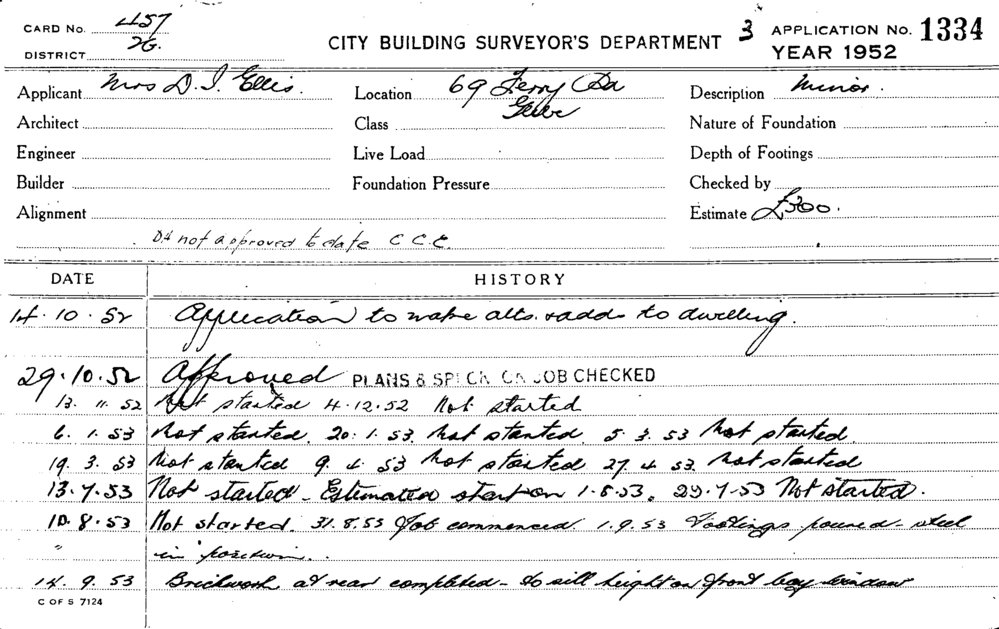 CARD No. 457
DISTRICT 2G.
CITY BUILDING SURVEYOR'S DEPARTMENT 3 APPLICATION No. 1334
YEAR 1952
Applicant Mrs D. I. Ellis. Location 69 Ferry Rd Glebe Description Minor.
Architect Class Nature of Foundation
Engineer Live Load Depth of Footings
Builder Foundation Pressure Checked by
Alignment Estimate £300.
not approved to date C.C.C.
DATE HISTORY
14.10.52 Application to make alts. & adds to dwelling.
29.10.52 Approved PLANS & ON JOB CHECKED
13.11.52 Not started 4.12.52 Not started
6.1.53 Not started. 20.1.53. Not started 5.3.53 Not started.
19.3.53 Not started 9.4.53 Not started 27.4.53. Not started
13.7.53 Not started - Estimated start on 1.8.53. 29.7.53 Not started.
10.8.53 Not started. 31.8.53 Job commenced 1.9.53 Footings poured - steel
" in position..
14.9.53 Brickwork at rear completed - to sill height on front bay window
C OF S 7124